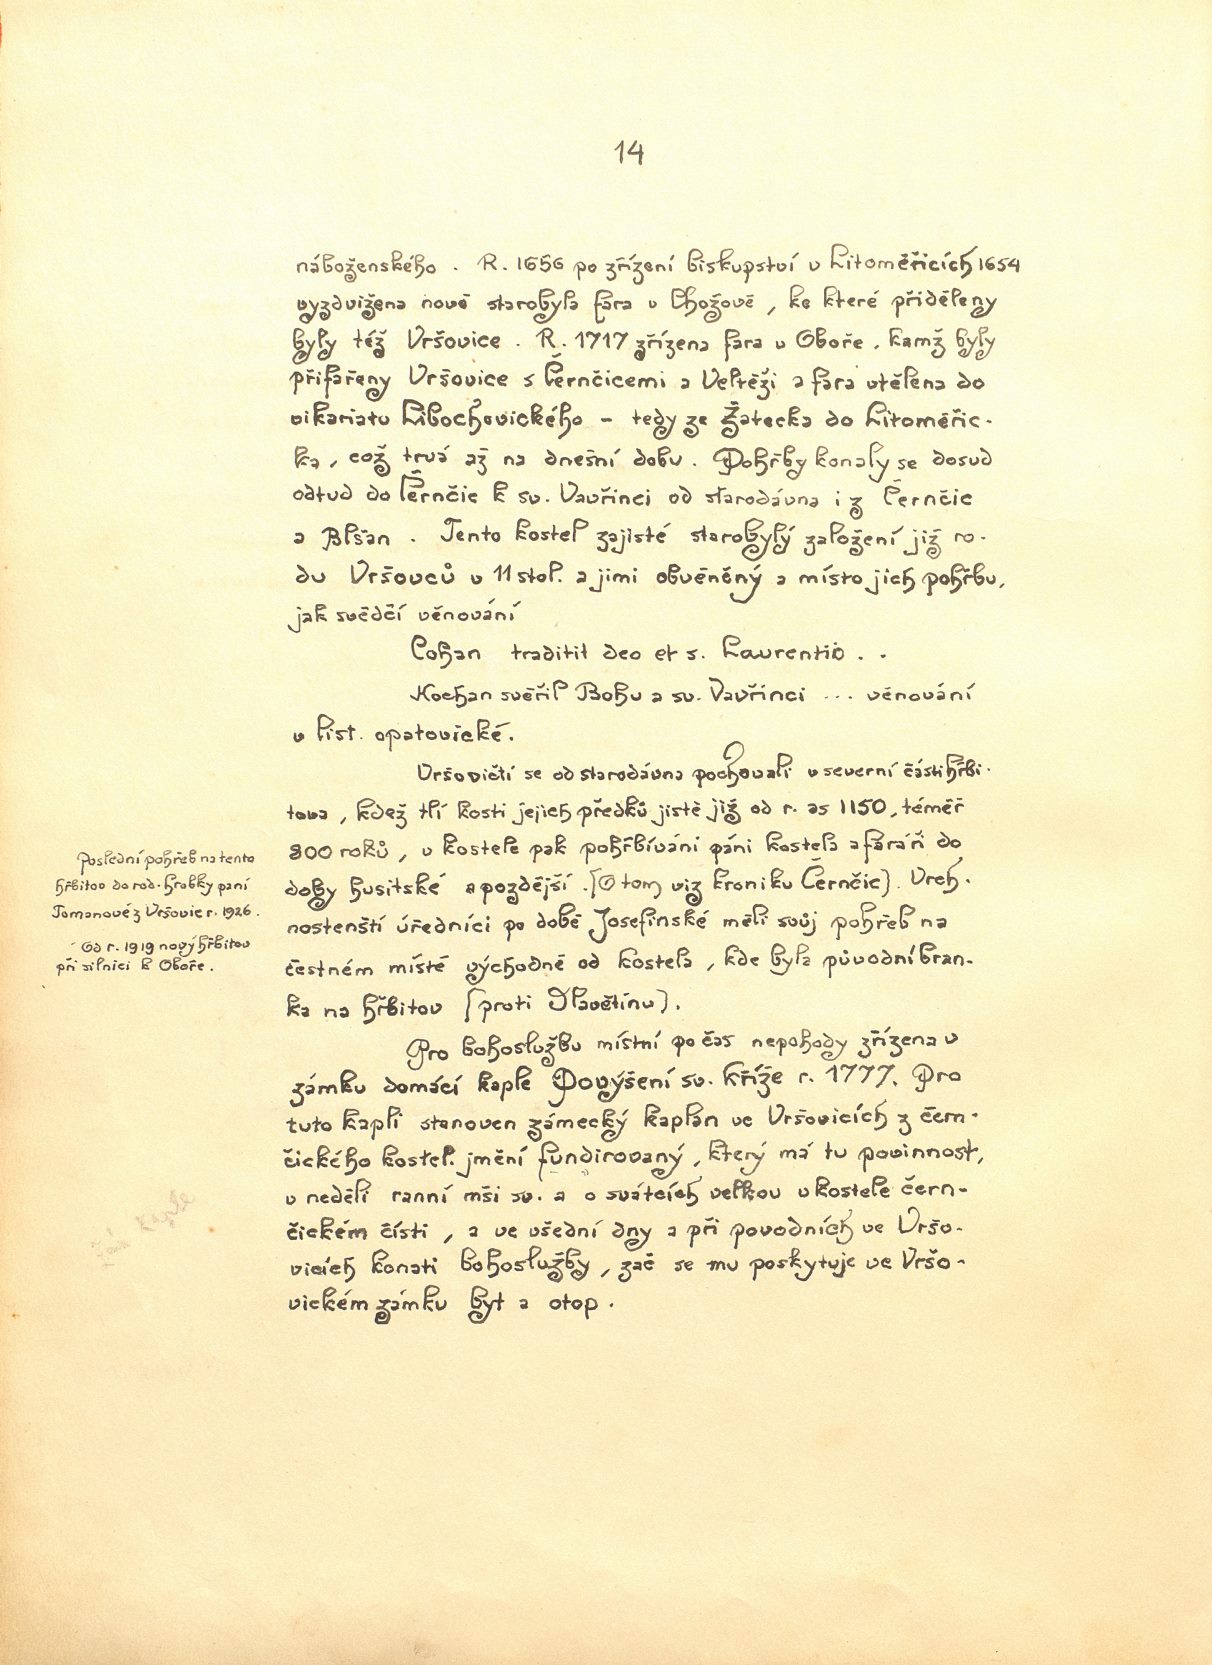 14
náboženského . R. 1656 po zřízení biskupství v Litoměřicích 1654
vyzdvižena nově starobylá fára v Chožově , ke které přiděleny
byly též Vršovice . R. 1717 zřízena fara v Oboře , kamž byly
přifařeny Vršovice s Černčicemi a Veltěži a fara vtělena do
vikariatu Libochovického – tedy ze Žatecka do Litoměřic-
ka , což trvá až na dnešní dobu . Pohřby konaly se dosud
odtud do Černčic k sv. Vavřinci od starodávna i z Černčic
a Blšan . Tento kostel zajisté starobylý založení již ro-
du Vršovců v 11 stol. a jimi obvěněný a místo jich pohřbu,
jak svědčí věnování
Cohan traditit deo et s. Laurentio . .
Kochan svěřil Bohu a sv. Vavřinci ... věnování
v list. opatovické .
Vršovičtí se od starodávna pochovali v severní části hřbi-
tova , kdež tlí kosti jejich předků jistě již od r. as 1150, téměř
800 roků , v kostele pak pohřbíváni páni kostela a faráři do
doby husitské a pozdější . (O tom viz kroniku Černčic) . Vrch-
nostenští úředníci po době Josefinské měli svůj pohřeb na
čestném místě východně od kostela , kde byla původní bran-
ka na hřbitov (proti Slavětínu) .
Poslední pohřeb na tento
hřbitov do rod. hrobky paní
Tomanové z Vršovic r. 1926 .
Od r. 1919 nový hřbitov
při silnici k Oboře .
Pro bohoslužbu místní po čas nepohody zřízena v
zámku domácí kaple Povýšení sv. kříže r. 1777. Pro
tuto kapli stanoven zámecký kaplan ve Vršovicích z čern-
čického kostel. jmění fundirovaný , který má tu povinnost,
v neděli ranní mši sv. a o svátcích velkou v kostele čern-
čickém čísti , a ve všední dny a při povodních ve Vršo-
vicích konati bohoslužby , zač se mu poskytuje ve Vršo-
vickém zámku byt a otop .
kaple